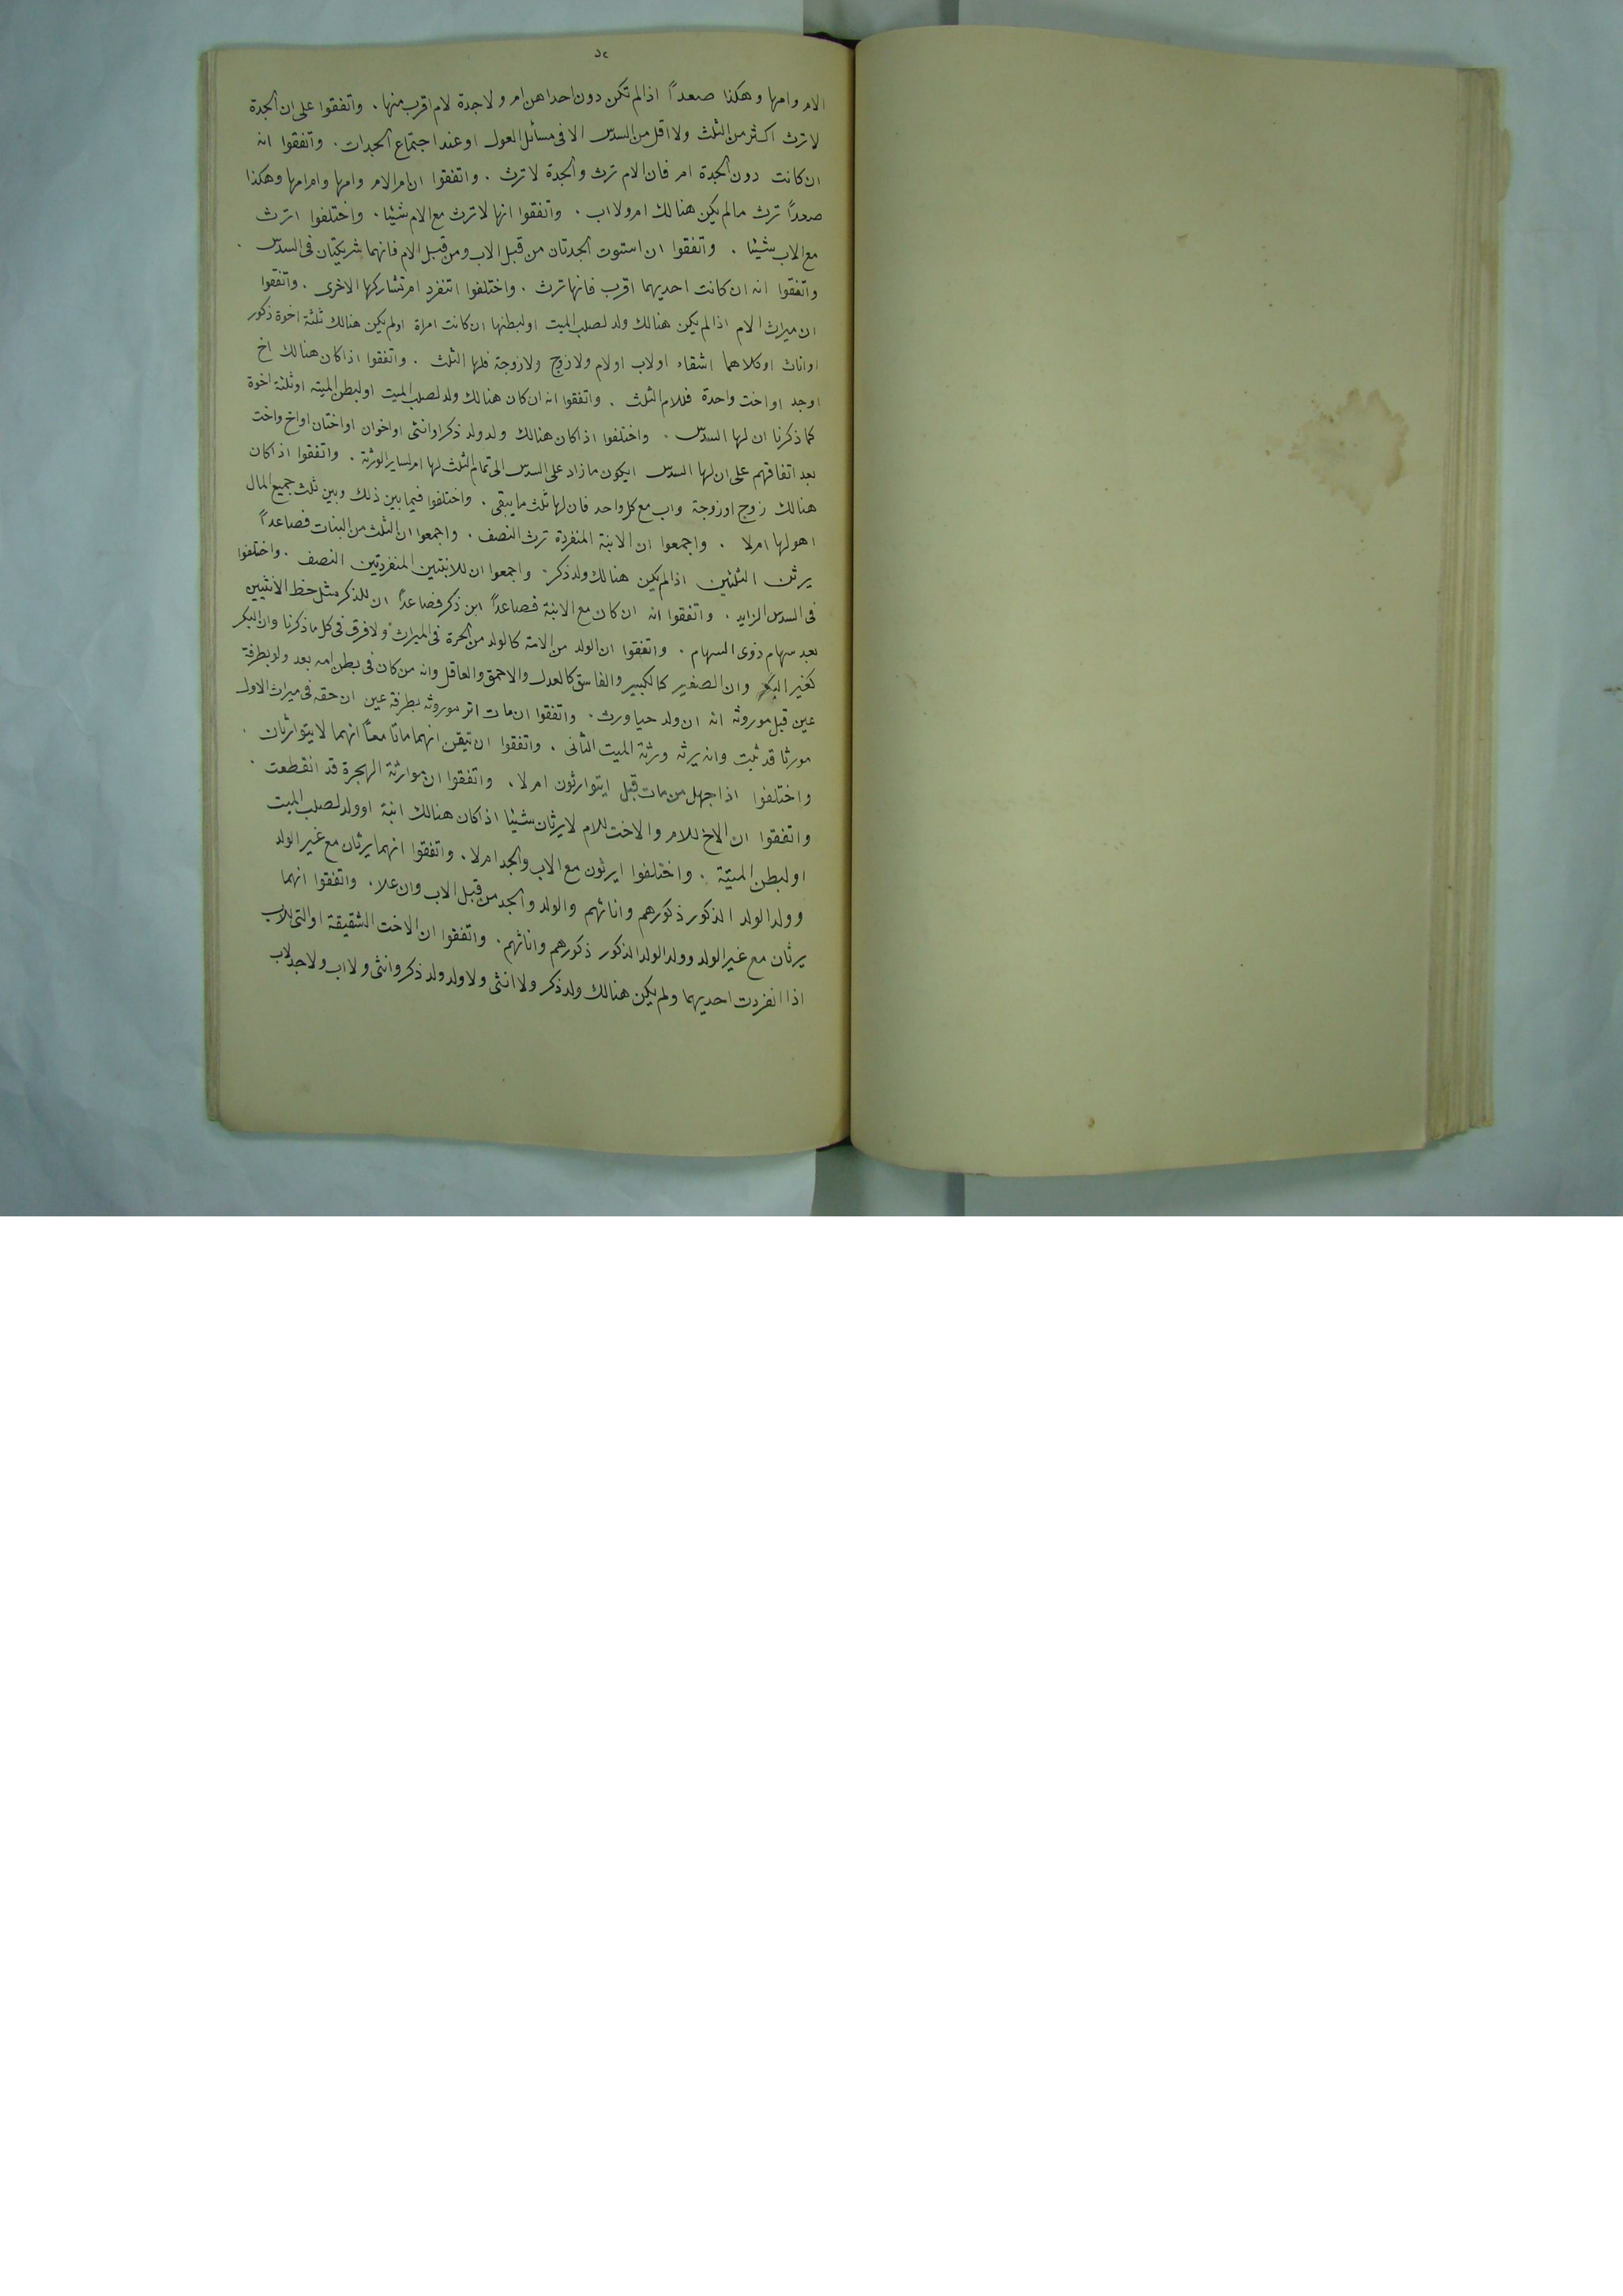 ٥٢
الام وامها وهكذا صعداً اذا لم تكن دون احداهن ام ولا جدة لام اقرب منها . واتفقوا على ان الجدة
لا ترث اكثر من الثلث ولا اقل من السدس الا فى مسائل العول او عند اجتماع الجدات . واتفقوا انه
ان كانت دون الجدة ام فان الام ترث والجدة لا ترث . واتفقوا ان ام الام وامها وام امها وهكذا
صعداً ترث ما لم يكن هنالك ام ولا اب . واتفقوا انها لا ترث مع الام شيئا . واختلفوا اترث
مع الاب شيئا . واتفقوا ان استوت الجدتان من قبل الاب ومن قبل الام فانهما شريكتان فى السدس .
واتفقوا انه ان كانت احديهما اقرب فانها ترث . واختلفوا اتنفرد ام تشاركها الاخرى . واتفقوا
ان ميراث الام اذا لم يكن هنالك ولد لصلب الميت او لبطنها ان كانت امراة او لم يكن هنالك ثلثة اخوة ذكور
او اناث او كلاهما اشقاء او لاب او لام ولا زوج ولا زوجة فلها الثلث . واتفقوا اذا كان هنالك اخ
اوجد او اخت واحدة فللام الثلث . واتفقوا انه ان كان هنالك ولد لصلب الميت او لبطن الميته او ثلثة اخوة
كما ذكرنا ان لها السدس . واختلفوا اذا كان هنالك ولد ولد ذكر او انثى او اخوان او اختان او اخ واخت
بعد اتفاقهم على ان لها السدس ايكون ما زاد على السدس الى تمام الثلث لها ام لساير الورثة . واتفقوا اذا كان
هنالك زوج او زوجة واب مع كل واحد فان لها ثلث ما يبقى . واختلفوا فيما بين ذلك وبين ثلث جميع المال
اهو لها ام لا . واجمعوا ان الابنة المنفردة ترث النصف . واجمعوا ان الثلث من البنات فصاعداً
يرثن الثلثين اذا لم يكن هنالك ولد ذكر . واجمعوا ان للابنتين المنفردتين النصف . واختلفوا
فى السدس الزايد . واتفقوا انه ان كان مع الابنة فصاعداً ابن ذكر فصاعداً ان للذكر مثل حظ الانثيين
بعد سهام ذوى السهام . واتفقوا ان الولد من الامة كالولد من الحرة فى الميراث ولا فرق فى كل ما ذكرنا وان البكر
كغير البكر وان الصغير كالكبير والفاسق كالعدل والاحمق والعاقل وانه من كان فى بطن امه بعد ولو بطرفة
عين قبل موروثه انه ان ولد حيا ورث . واتفقوا ان مات اثر موروثه بطرفة عين ان حقه فى ميراث الاول
مورثا قد ثبت وانه يرثه ورثة الميت الثانى . واتفقوا ان تيقن انهما ماتا معاً انهما لا يتوارثان .
واختلفوا اذا جهل من مات قبل ايتوارثون ام لا . واتفقوا ان موارثة الهجرة قد انقطعت .
واتفقوا ان الاخ للام والاخت للام لا يرثان شيئا اذا كان هنالك ابنة او ولد لصلب الميت
او لبطن الميتة . واختلفوا ايرثون مع الاب والجد ام لا . واتفقوا انهما يرثان مع غير الولد
وولد الولد الذكور ذكورهم واناثهم والولد والجد من قبل الاب وان علا . واتفقوا انهما
يرثان مع غير الولد وولد الولد الذكور ذكورهم واناثهم . واتفقوا ان الاخت الشقيقة او التى للاب
اذا انفردت احديهما ولم يكن هنالك ولد ذكر ولا انثى ولا ولد ولد ذكر وانثى ولا اب ولا جد لاب